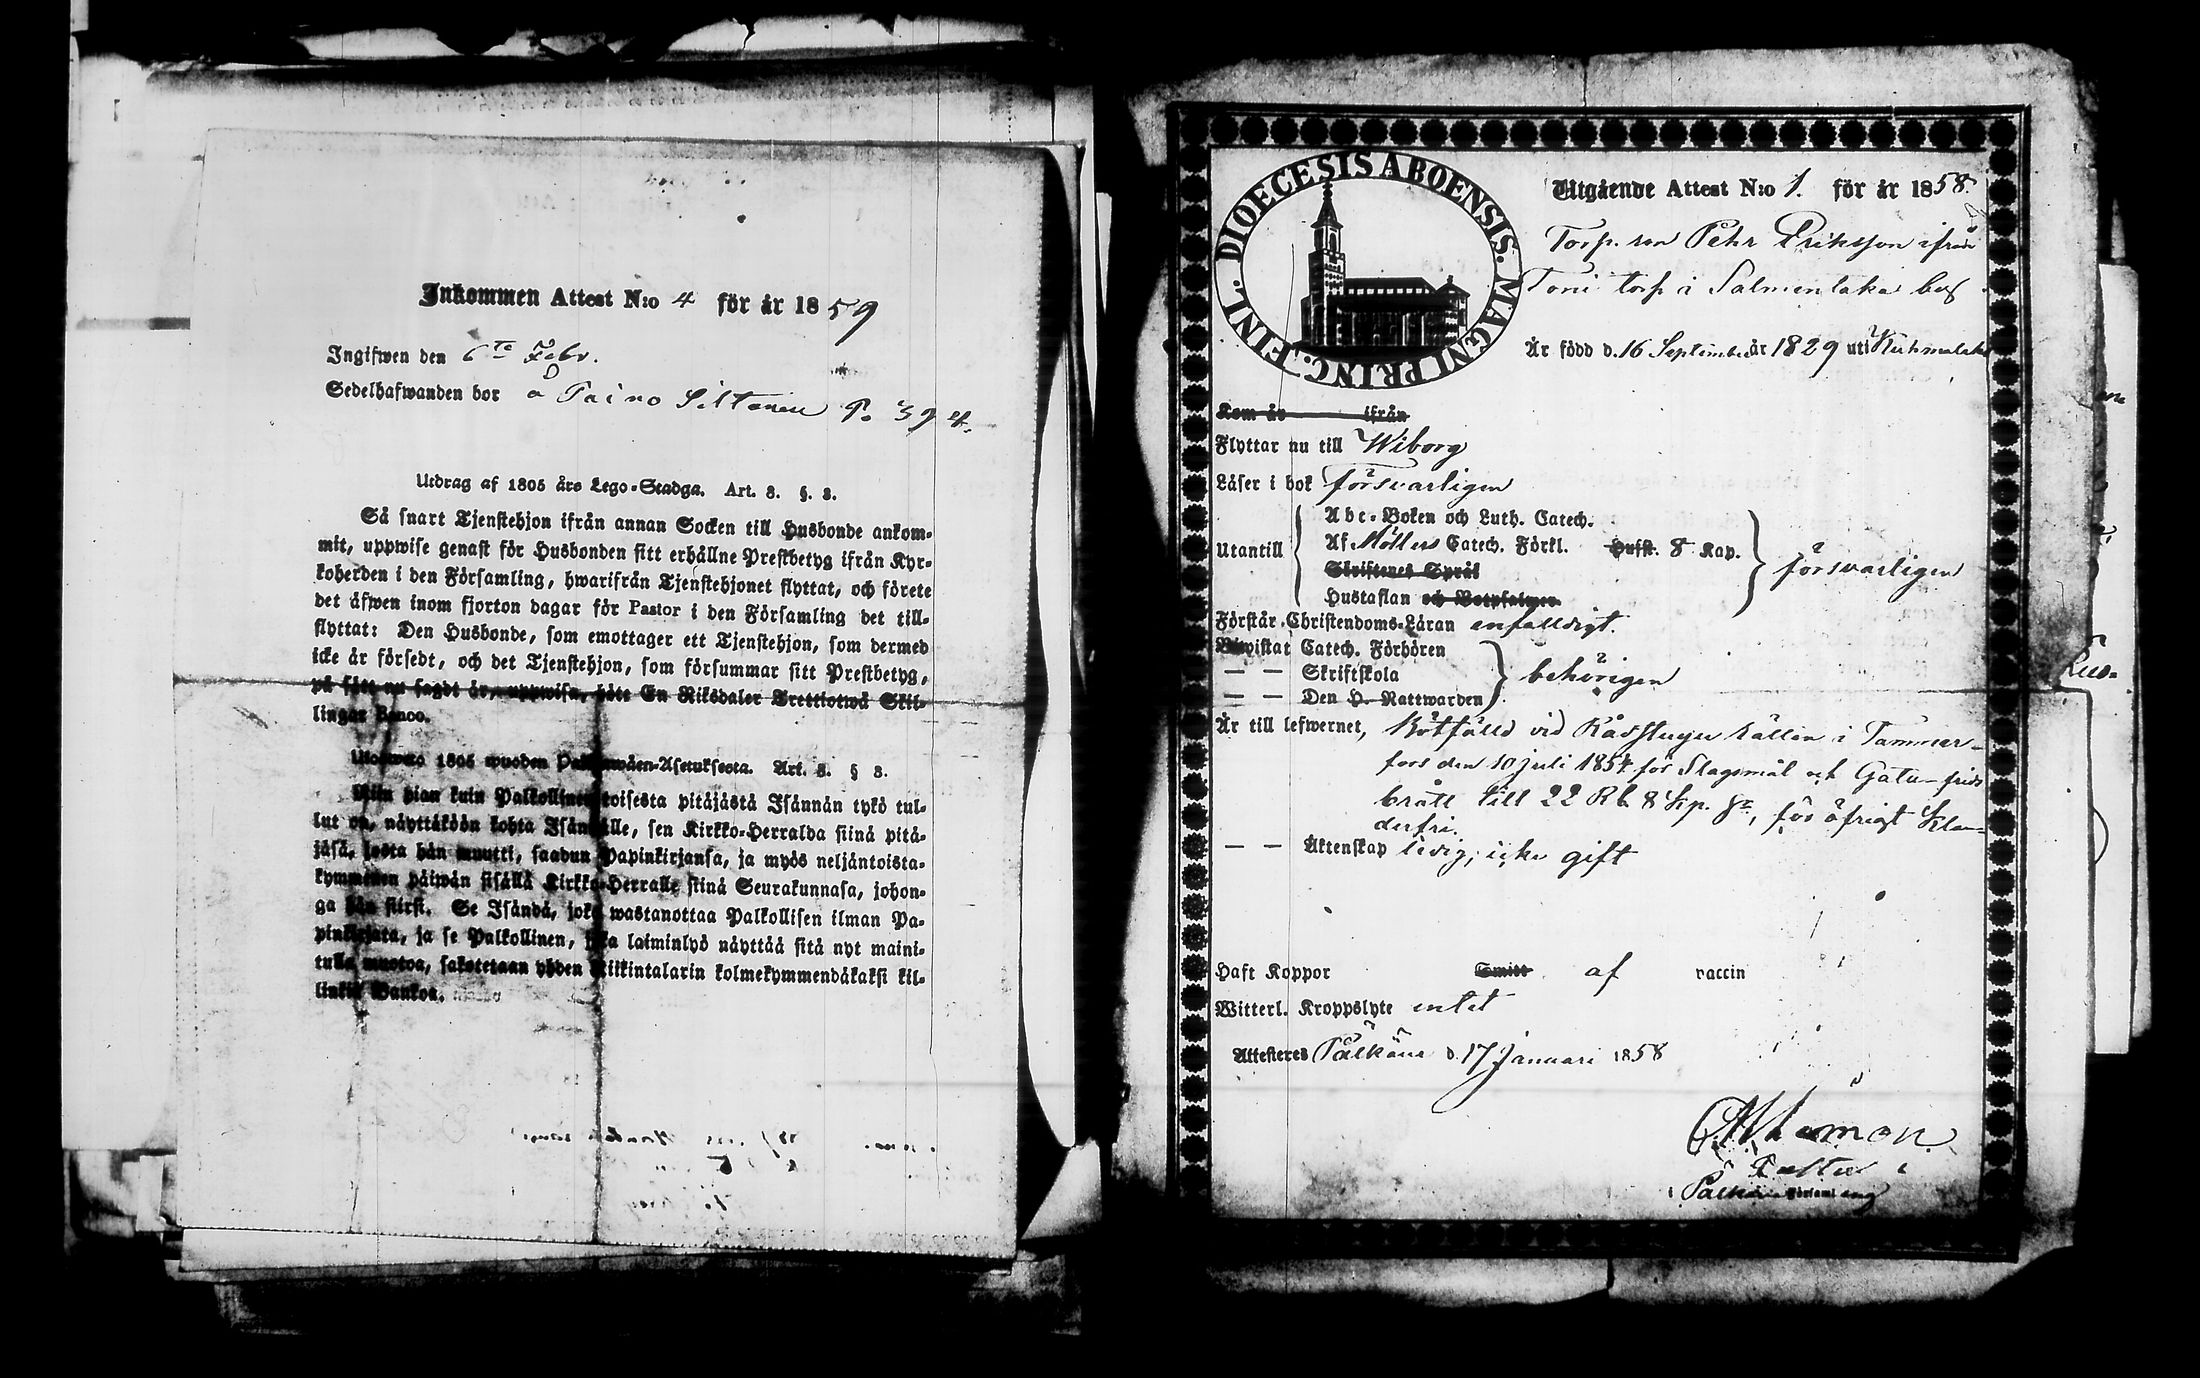 Inkommen Attest N:o 4 för år 1859
Ingifwen den 6te Febr.
Sedelhafwanden bor å Taino Siltanen P. 394.
Utdrag af 1805 års Lego-Stadga. Art. 8. §. 8.
Så snart Tjenstehjon ifrån annan Socken till Husbonde ankom-
mit, uppwise genast för Husbonden sitt erhållne Prestbetyg ifrån Kyr-
koherden i den Församling, hwarifrån Tjenstehjonet flyttat, och förete
det äfwen inom fjorton dagar för Pastor i den Församling det till-
flyttat: Den Husbonde, som emottager ett Tjenstehjon, som dermed
icke är försedt, och det Tjenstehjon, som försummar sitt Prestbetyg,
på sätt nu sagdt är, uppwisa, böte En Riksdaler Trettiotwå Skil-
lingar Banco.
Uloswето 1805 wuoden Palkkawäen-Asetuksesta. Art. 8. § 8.
Niin pian kuin Palkollinen toisesta pitäjästä Isännän tykö tul-
lut on, näyttäköön kohta Isännälle, sen Kirkko-Herralda siinä pitä-
jäsä, josta hän muutti, saadun Papinkirjansa, ja myös neljäntoista-
kymmenen päiwän sisällä Kirkko-Herralle siinä Seurakunnasa, johon-
ga hän siirsi. Se Isändä, joka wastanottaa Palkollisen ilman Pa-
pinkirjata, ja se Palkollinen, joka laiminlyö näyttää sitä nyt maini-
tulla muotoa, sakotetaan yhden Riikintalarin kolmekymmendäkaksi kil-
linkiä Bankoa.
DIOECESIS ABOENSIS. MAGNI PRINC. FINL.
Utgående Attest N:o 1. för år 1858.
Torp. son Pehr Eriksson ifrån
Toni torp å Salmentaka bol
Är född d. 16 September år 1829 uti Kuhmalahti
Kom år ifrån
Flyttar nu till Wiborg
Läser i bok försvarligen
Utantill
Abc-Boken och Luth. Catech.
Af Möllers Catech. Förkl. Hufst. 8 Kap.
Skriftenes Språk
Hustaflan och Botpsalmer
försvarligen
Förstår Christendoms-Läran enfalldigt.
Biwistat Catech. Förhören
— — Skriftskola
— — Den H. Nattwarden
behörigen
Är till lefwernet, Bötfälld vid Rådstugu Rätten i Tammer-
fors den 10 juli 1854 för Slagsmål och Gatu-frids
brott till 22 Rb 8 kp. Sr, för öfrigt klan-
derfri.
— — Äktenskap ledig, icke gift
Haft Koppor Smitt af vaccin
Witterl. Kroppslyte intet
Attesteres Pälkäne d. 17 Januari 1858
Pastor i
Pälkäne Församling